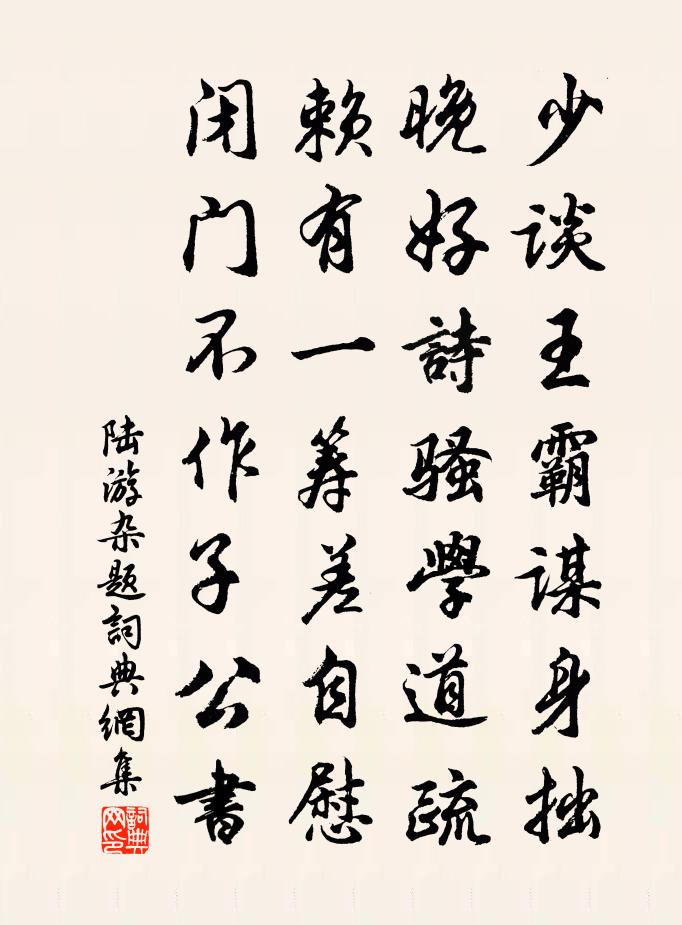 少谈王霸谋身拙
晚好詩骚學道疏
赖有一筹差自慰
闭门不作子公書
陆游杂题詞典網集
詞典
网印